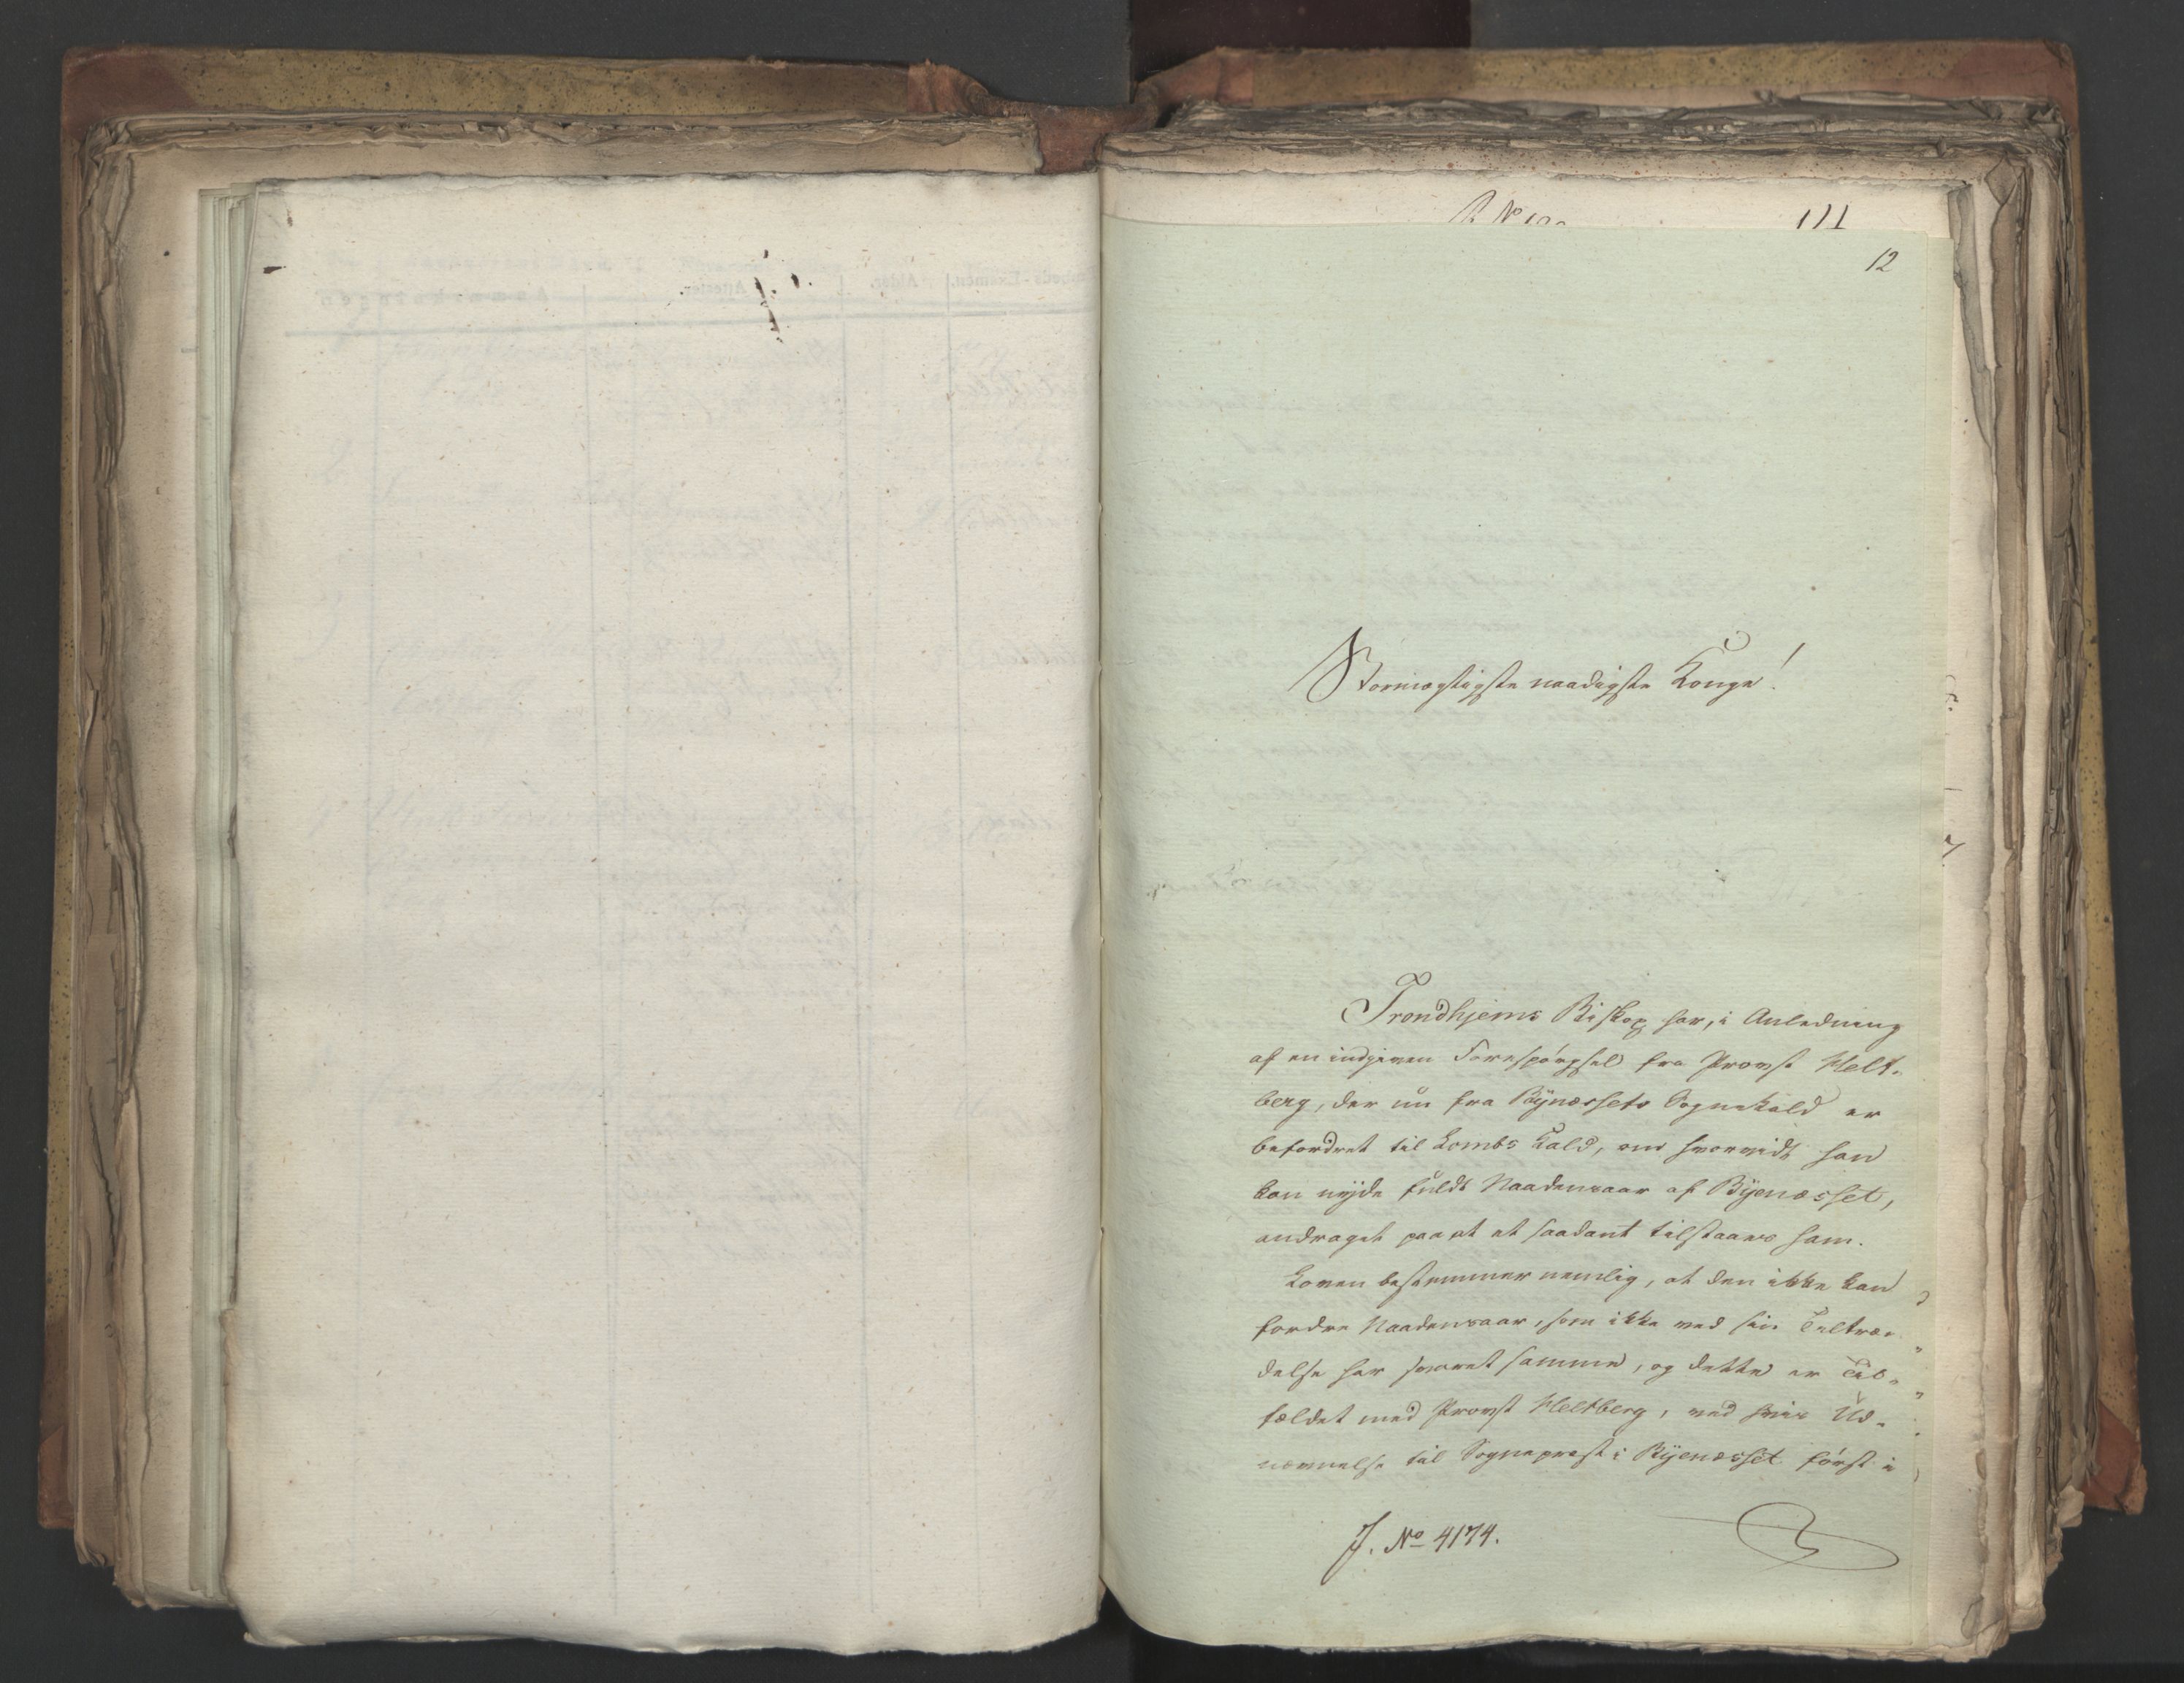 111
12
Stormægtigste naadigste Konge!
Trondhjems Biskop har, i Anledning
af en indgiven Forespørgsel fra Provst Helt-
berg, der nu fra Bynæssets Sognekald er
befordret til Lombs Kald, om hvorvidt han
kan nyde fuldt Naadensaar af Byenæsset,
andraget paa at et saadant tilstaaes ham.
Loven bestemmer nemlig, at den ikke kan
fordre Naadensaar, som ikke ved sin Tiltræ-
delse har svaret samme, og dette er Til-
fældet med Provst Heltberg, ved hvis Ud-
nævnelse til Sognepræst i Byenæsset først i
J. No 4174.